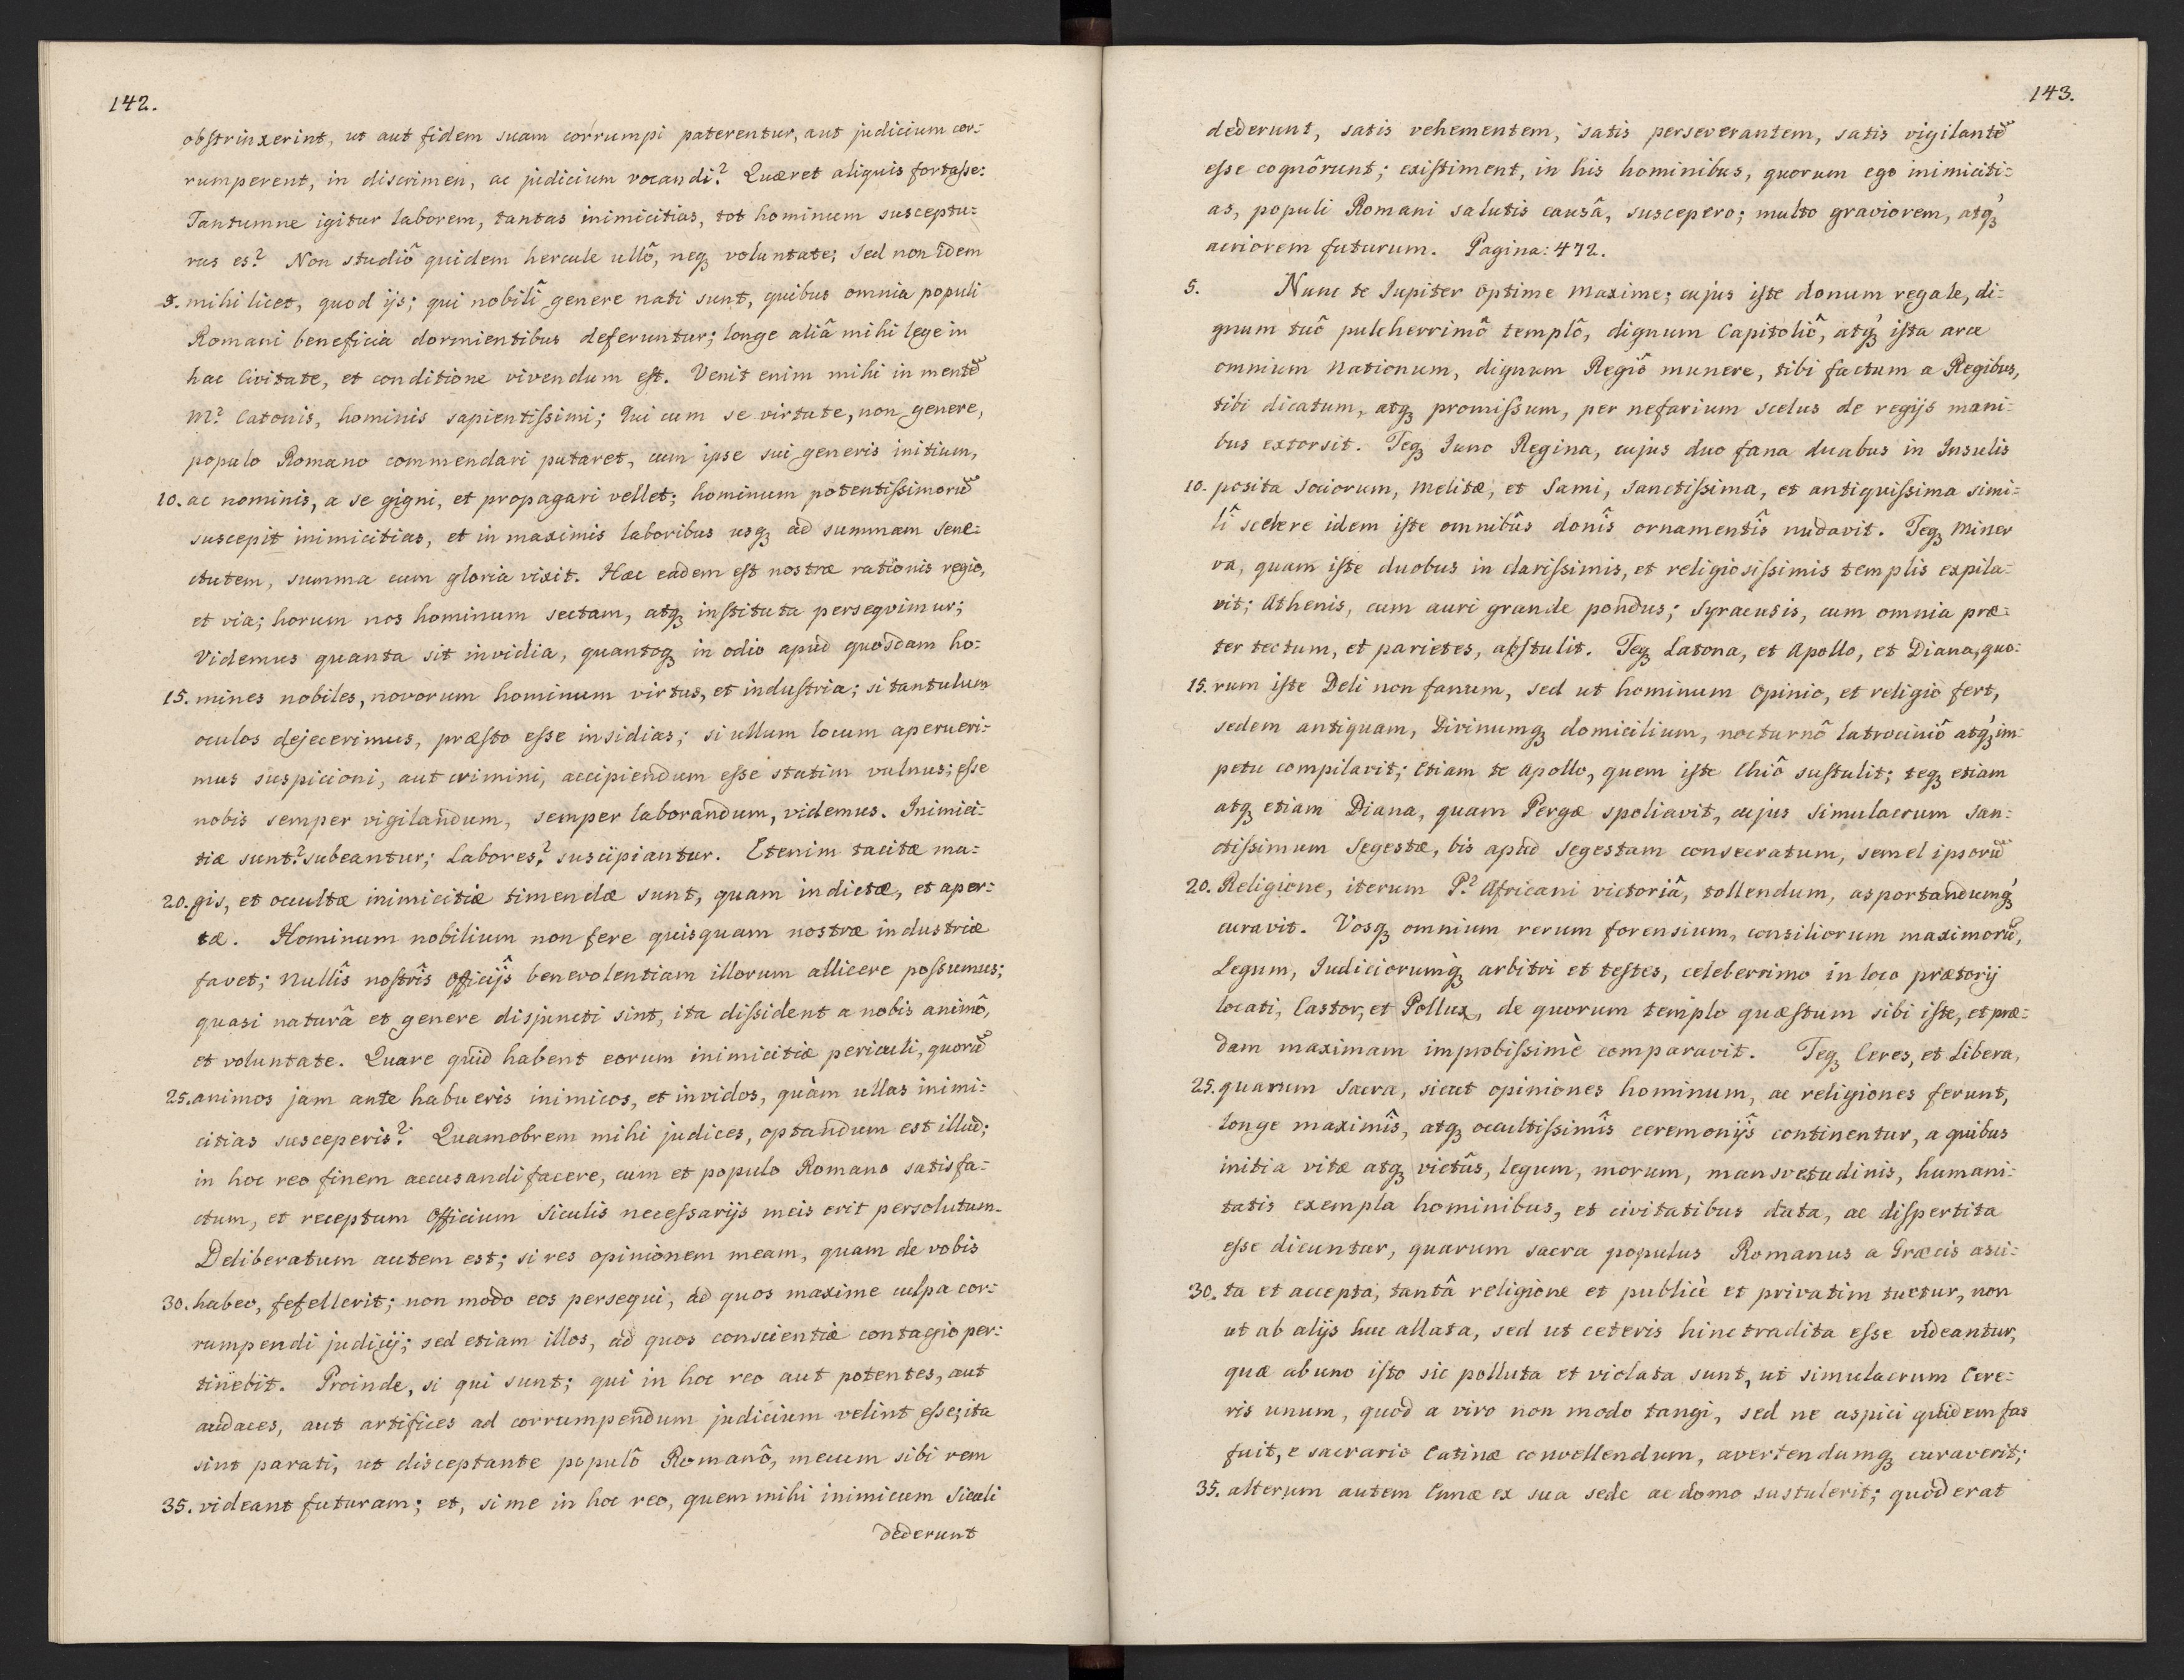 142.
obstrinxerint, ut aut fidem suam corrumpi paterentur, aut judicium cor:
rumperent, in discrimen, ac judicium vocandi? Quæret aliquis fortasse:
Tantumne igitur laborem, tantas inimicitias, tot hominum susceptu:
rus es? Non studiô quidem hercule ullô, neq voluntate; Sed non idem
5. mihi licet, quod ijs; qui nobilî genere nati sunt, quibus omnia populi
Romani beneficia dormientibus deferuntur; longe aliâ mihi lege in
hac Civitate, et conditione vivendum est. Venit enim mihi in mentẽ
M? Catonis, hominis sapientissimi; Qui cum se virtute, non genere,
populo Romano commendari putaret, cum ipse sui generis initium,
10. ac nominis, a se gigni, et propagari vellet; hominum potentissimorũ
suscepit inimicitias, et in maximis laboribus usq ad summam sene:
ctutem, summa cum gloria vixit. Hæc eadem est nostræ rationis regio,
et via; horum nos hominum sectam, atq instituta persequimur;
Videmus quanta sit invidia, quantoq in odio apud quosdam ho:
15. mines nobiles, novorum hominum virtus, et industria; si tantulum
oculos dejecerimus, præsto esse insidias; si ullum locum aperueri:
mus suspicioni, aut crimini, accipiendum esse statim vulnus; esse
nobis semper vigilandum, semper laborandum, videmus. Inimici:
tiæ sunt? subeantur; Labores? suscipiantur. Etenim tacitæ ma:
20. gis, et occultæ inimicitiæ timendæ sunt, quam indictæ, et aper:
tæ. Hominum nobilium non fere quisquam nostræ industriæ
favet; Nullîs nostrîs Officijs benevolentiam illorum allicere possumus;
quasi naturâ et genere disjuncti sint, ita dissident a nobis animô,
et voluntate. Quare quid habent eorum inimicitiæ periculi, quorũ
25. animos jam ante habueris inimicos, et invidos, quàm ullas inimi:
citias susceperis? Quamobrem mihi judices, optandum est illud;
in hoc reo finem accusandi facere, cum et populo Romano satisfa:
ctum, et receptum Officium Siculis necessarijs meis erit persolutum.
Deliberatum autem est; si res opinionem meam, quam de vobis
30. habeo, fefellerit; non modo eos persequi, ad quos maxime culpa cor:
rumpendi judicij; sed etiam illos, ad quos conscientiæ contagio per:
tinebit. Proinde, si qui sunt; qui in hoc reo aut potentes, aut
audaces, aut artifices ad corrumpendum judicium velint esse; ita
sint parati, ut disceptante populô Romanô, mecum sibi rem
35. videant futuram; et, si me in hoc reo, quem mihi inimicum Siculi
dederunt
143.
dederunt, satis vehementem, satis perseverantem, satis vigilantẽ
esse cognôrunt; existiment, in his hominibus, quorum ego inimiciti:
as, populi Romani salutis causâ, suscepero; multo graviorem, atq
acriorem futurum. Pagina: 472.
5. Nunc te Jupiter Optime Maxime; cujus iste donum regale, di:
gnum tuô pulcherrimô templô, dignum Capitoliô, atq ista arce
omnium Nationum, dignum Regiô munere, tibi factum a Regibus,
tibi dicatum, atq promissum, per nefarium scelus de regijs mani:
bus extorsit. Teq Juno Regina, cujus duo fana duabus in Insulis
10. posita Sociorum, Melitæ, et Sami, Sanctissima, et antiquissima simi:
lî scelere idem iste omnibûs donîs ornamentîs nudavit. Teq Miner
va, quam iste duobus in clarissimis, et religiosissimis templis expila:
vit; Athenis, cum auri grande pondus; Syracusis, cum omnia præ:
ter tectum, et parietes, abstulit. Teq Latona, et Apollo, et Diana, quo:
15. rum iste Deli non fanum, sed ut hominum Opinio, et religio fert,
sedem antiquam, Divinumq domicilium, nocturnô latrociniô atq im:
petu compilavit; Etiam te Apollo, quem iste Chiô sustulit; teq etiam
atq etiam Diana, quam Pergæ spoliavit, cujus Simulacrum San:
ctissimum Segestæ, bis apud Segestam consecratum, semel ipsorũ
20. Religione, iterum P? Africani victoriâ, tollendum, asportandumq
curavit. Vosq omnium rerum forensium, consiliorum maximorũ,
Legum, Judiciorumq arbitri et testes, celeberrimo in loco prætorij
locati, Castor, et Pollux, de quorum templo quæstum sibi iste, et præ:
dam maximam improbissimè comparavit. Teq Ceres, et Libera,
25. quarum Sacra, sicut opiniones hominum, ac religiones ferunt,
longe maximîs, atq occultissimîs ceremonijs continentur, a quibus
initia vitæ atq victûs, legum, morum, mansvetudinis, humani:
tatis exempla hominibus, et civitatibus data, ac dispertita
esse dicuntur, quarum sacra populus Romanus a Græcis asci:
30. ta et accepta, tantâ religione et publicè et privatim tuetur, non
ut ab alijs huc allata, sed ut ceteris hinc tradita esse videantur,
quæ ab uno isto sic polluta et violata sunt, ut simulacrum Cere:
ris unum, quod a viro non modo tangi, sed ne aspici quidem fas
fuit, e sacrario Catinæ convellendum, avertendumq curaverit;
35. alterum autem Ennæ ex sua sede ac domo sustulerit; quod erat